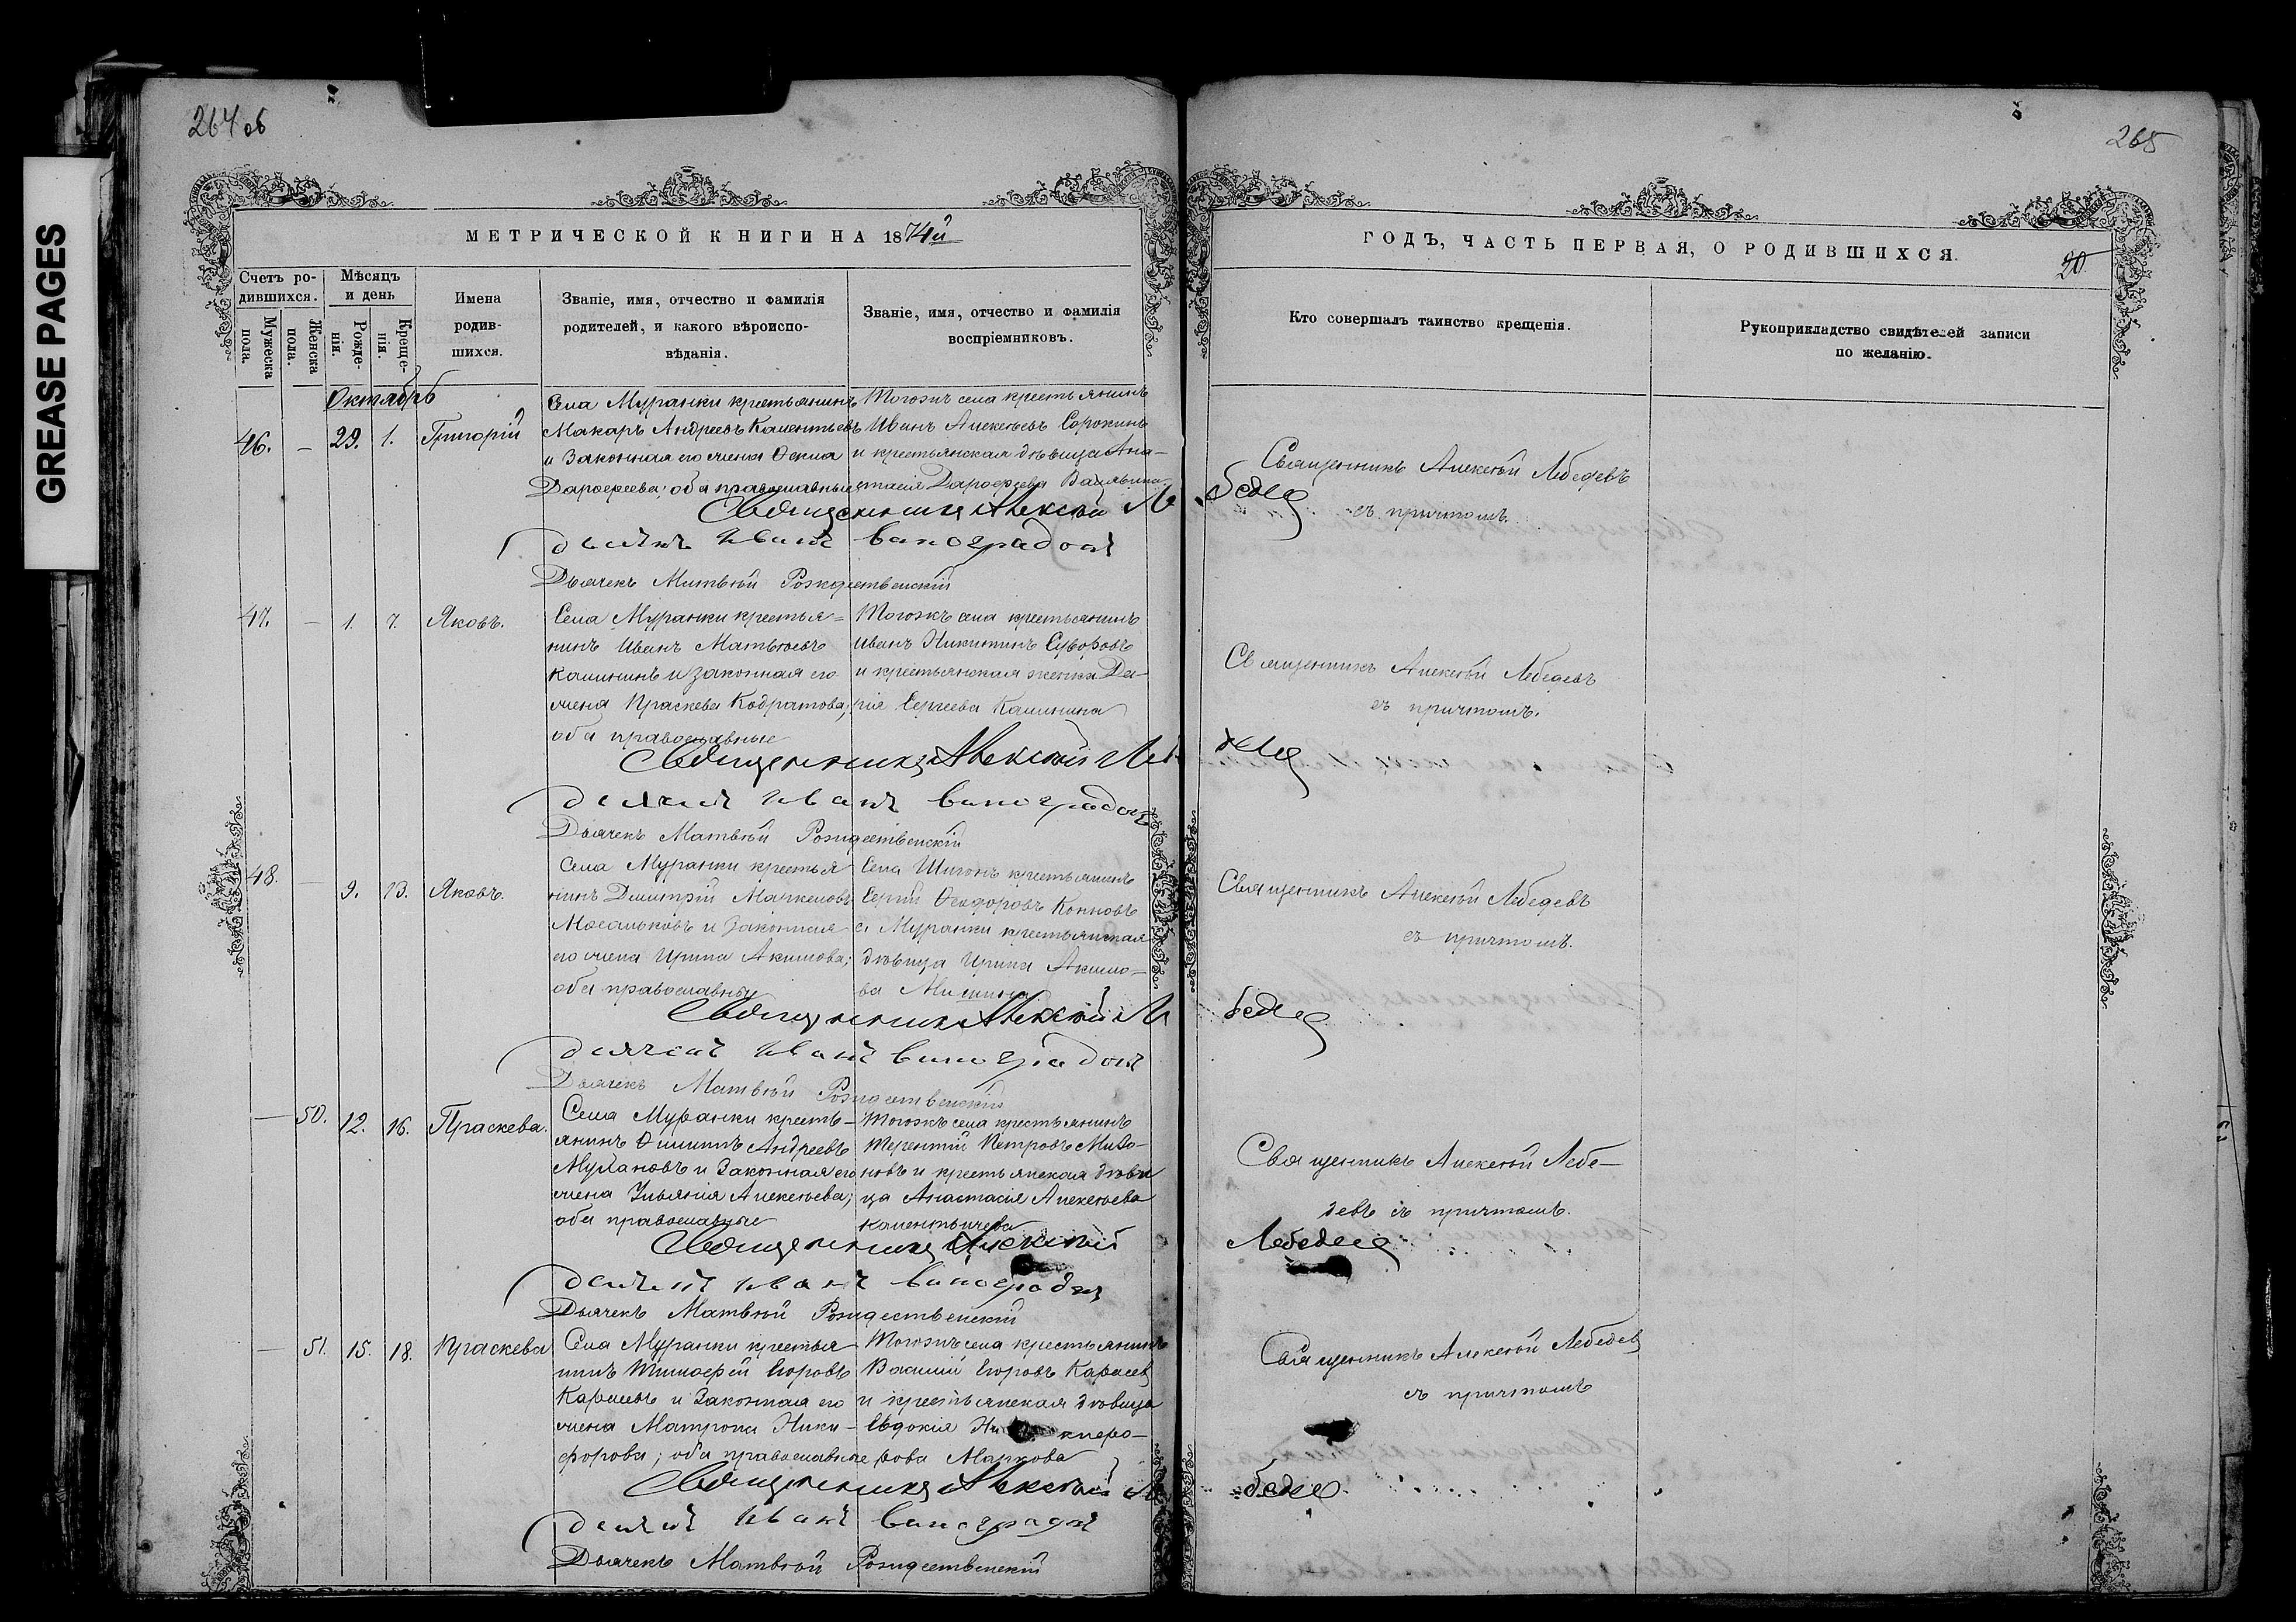 GREASE PAGES
264 об
265
МЕТРИЧЕСКОЙ КНИГИ НА 1874й
ГОДЪ, ЧАСТЬ ПЕРВАЯ, О РОДИВШИХСЯ.
20
Счетъ ро-
дившихся.
Мужеска
пола.
Женска
пола.
Мѣсяцъ
и день
Рожде-
нія.
Креще-
нія.
Имена
родив-
шихся.
Званіе, имя, отчество и фамилія
родителей, и какого вѣроиспо-
вѣданія.
Званіе, имя, отчество и фамилія
воспріемниковъ.
Кто совершалъ таинство крещенія.
Рукоприкладство свидѣтелей записи
по желанію.
Октябрь
46. — 29. 1. Григорій
Села Муранки крестьянинъ
Макаръ Андреевъ Калентьевъ
и законная его жена Фекла
Дарофеева; оба православные
Тогожъ села крестьянинъ
Иванъ Алексѣевъ Сорокинъ
и крестьянская дѣвица Ана-
стасія Дарофеева
Священникъ Алексѣй Лебедевъ
съ причтомъ.
Священникъ Алексѣй Лебедев
дьячекъ Иванъ Виноградовъ
Дьячекъ Матвѣй Рождественскій
47. — 1. 7. Яковъ.
Села Муранки крестья-
нинъ Иванъ Матвѣевъ
Калининъ и законная его
жена Праскева Кодратова;
оба православные
Тогожъ села крестьянинъ
Иванъ Никитинъ Суворовъ
и крестьянская женка Да-
рія Сергеева Калинина
Священникъ Алексѣй Лебедевъ
съ причтомъ.
Священникъ Алексѣй Лебедев
дьячекъ Иванъ Виноградовъ
Дьячекъ Матвѣй Рождественскій
48. — 9. 13. Яковъ.
Села Муранки крестья
нинъ Димитрій Маркеловъ
Мосальковъ и законная
его жена Ирина Акимова;
оба православные
Села Шигонъ крестьянинъ
Сергій Феодоровъ Конновъ
с. Муранки крестьянская
дѣвица Ирина Акимо-
ва
Священникъ Алексѣй Лебедевъ
съ причтомъ.
Священникъ Алексѣй Лебедев
дьячекъ Иванъ Виноградовъ
Дьячекъ Матвѣй Рождественскій
— 50. 12. 16. Праскева.
Села Муранки кресть-
янинъ Филиппъ Андреевъ
Мулановъ и законная его
жена Ульянія Алексѣева;
оба православные
Тогожъ села крестьянинъ
Терентій Петровъ Миро-
новъ и крестьянская дѣви
ца Анастасія Алексѣева
Калентьичева
Священникъ Алексѣй Лебе-
девъ съ причтомъ.
Священникъ Алексѣй Лебедев
дьячекъ Иванъ Виноградовъ
Дьячекъ Матвѣй Рождественскій
— 51. 15. 18. Праскева
Села Муранки крестья
нинъ Тимофѣй Егоровъ
Карасевъ и законная его
жена Матрона Ники-
форова; оба православные
Тогожъ села крестьянинъ
Василій Егоровъ Карасевъ
и крестьянская дѣвица
Евдокія Никифо-
рова Маркова
Священникъ Алексѣй Лебедевъ
съ причтомъ
Священникъ Алексѣй Лебедев
дьячекъ Иванъ Виноградовъ
Дьячекъ Матвѣй Рождественскій